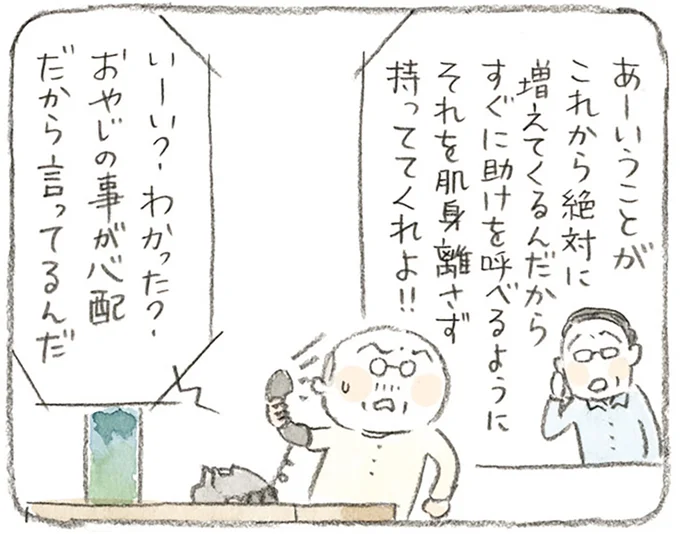 あーいうことが
これから絶対に
増えてくるんだから
すぐに助けを呼べるように
それを肌身離さず
持っててくれよ!!
いーい?わかった?
おやじの事が心配
だから言ってるんだ